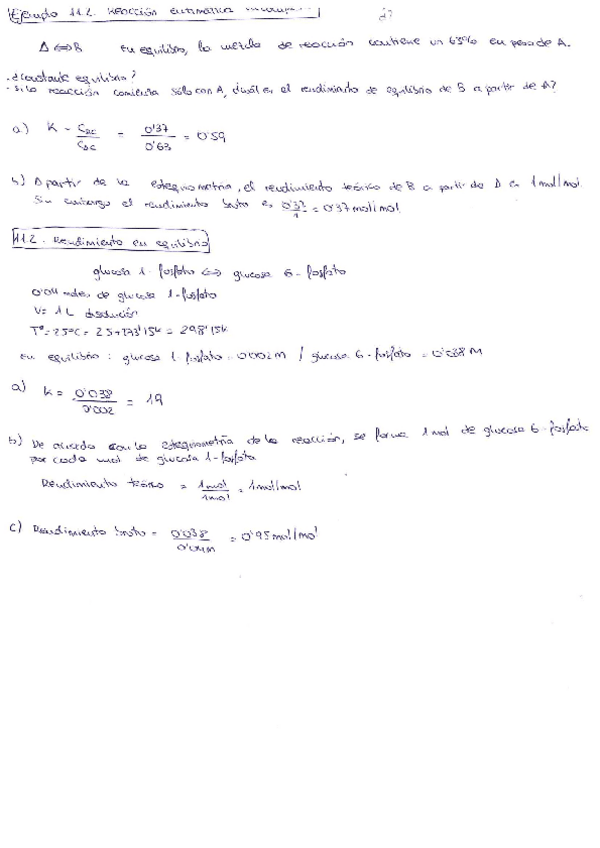 Ejemplo 11.2. Reacción enzimática
A ⇔ B En equilibrio, la mezcla de reacción contiene un 63% en peso de A.
- ¿Constante equilibrio?
- Si la reacción comienza sólo con A, ¿cuál es el rendimiento de equilibrio de B a partir de A?
a) K = = 0'37 / 0'63 = 0'59
b) A partir de la estequiometría, el rendimiento teórico de B a partir de A es 1 mol/mol.
Sin embargo el rendimiento bruto es 0'37/1 = 0'37 mol/mol
11.2. Rendimiento en equilibrio
glucosa 1-fosfato ⇔ glucosa 6-fosfato
0'04 moles de glucosa 1-fosfato
V= 1 L disolución
Tª=25ºC = 25+273'15K = 298'15K
En equilibrio: glucosa 1-fosfato = 0'002M / glucosa 6-fosfato = 0'038M
a) K = 0'038 / 0'002 = 19
b) De acuerdo con la estequiometría de la reacción, se forma 1 mol de glucosa 6-fosfato
por cada mol de glucosa 1-fosfato
Rendimiento teórico = 1mol / 1mol = 1mol/mol
c) Rendimiento bruto = 0'038 / 0'04M = 0'95 mol/mol